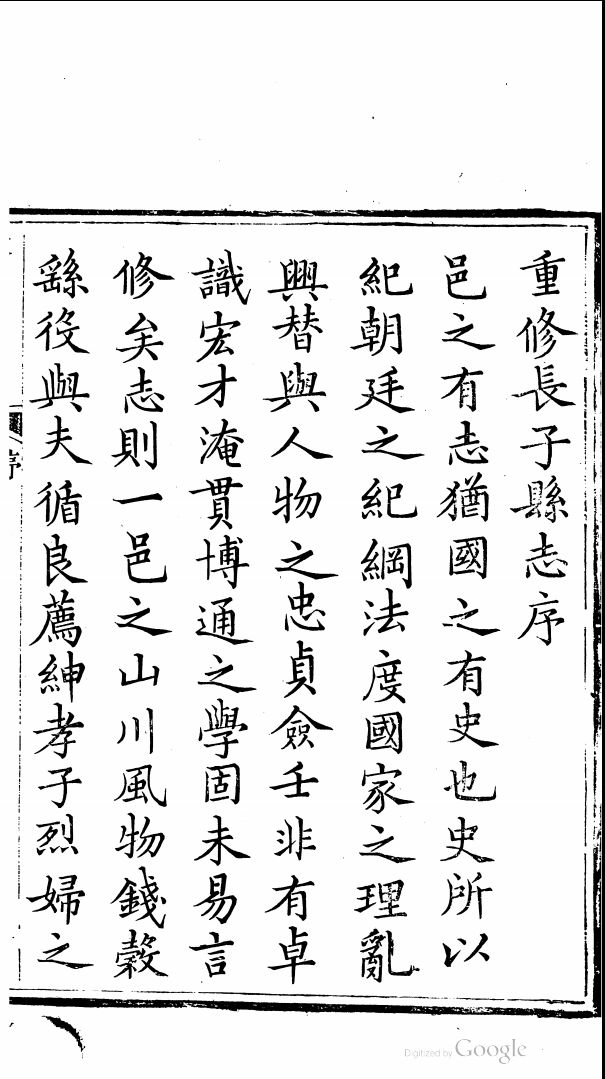 重修長子縣志序
邑之有志猶國之有史也史所以
紀朝廷之紀綱法度國家之理亂
興替與人物之忠貞僉壬非有卓
識宏才淹貫博通之學固未易言
修矣志則一邑之山川風物錢穀
繇役與夫循良薦紳孝子烈婦之
序
Digitized by Google